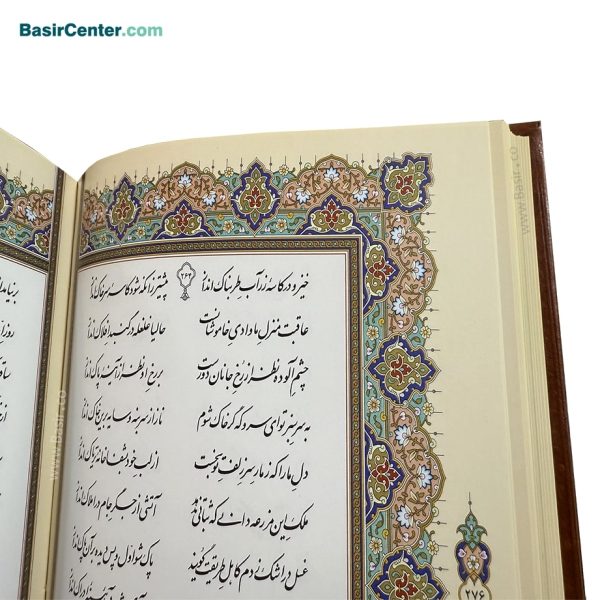 BasirCenter.com
۲۶۴
خیز و در کاسه زر آب طربناک انداز پیشتر زانکه شود کاسه سر خاک انداز
عاقبت منزل ما وادی خاموشانست حالیا غلغله در گنبد افلاک انداز
چشم آلوده نظر از رخ جانان دورست بر رخ او نظر از آینه پاک انداز
به سر سبز تو ای سرو که گر خاک شوم ناز از سر بنه و سایه بر این خاک انداز
دل ما را که ز مار سر زلف تو بخست از لب خود به شفاخانه تریاک انداز
ملک این مزرعه دانی که ثباتی ندهد آتشی از جگر جام در املاک انداز
غسل در اشک زدم کاهل طریقت گویند پاک شو اول و پس دیده بر آن پاک انداز
۲۷۶
بر نیامد
www.Basir.co
www.Basir.co